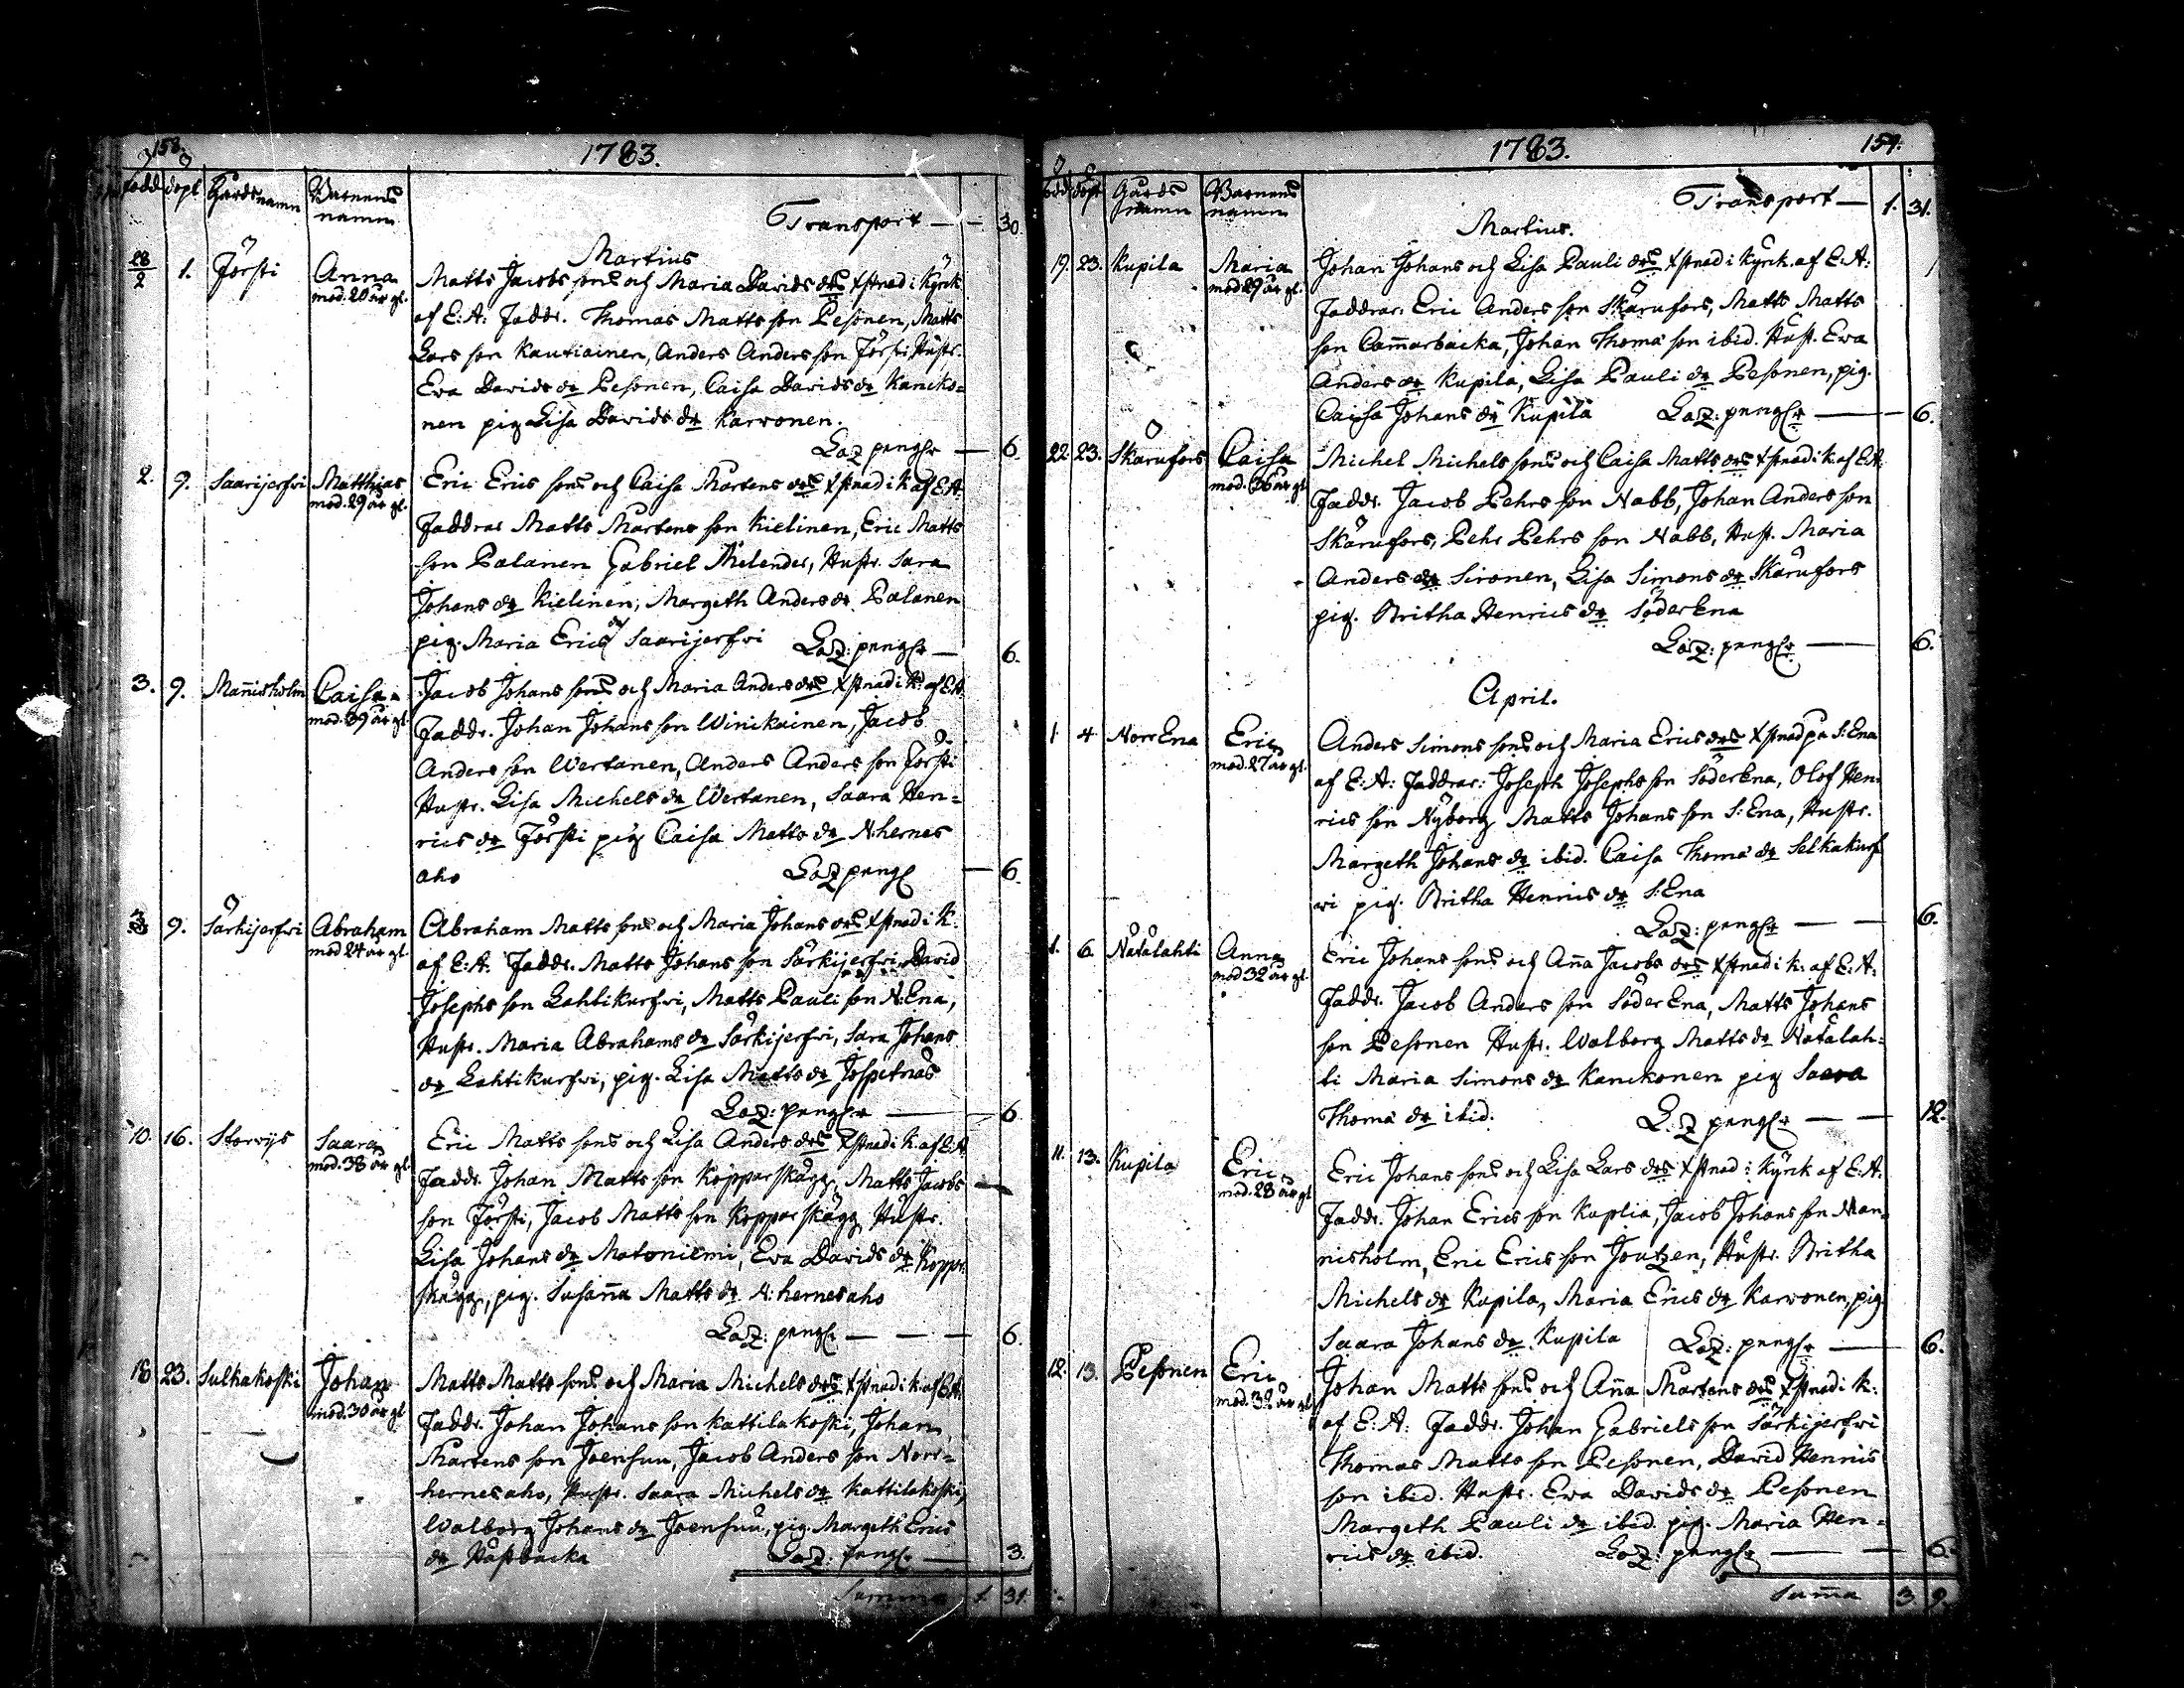 158.
1783.
född döpt Gårds namn Barnens namn
Transport — 30.
Martius
28/2 1. Försti Anna mod. 20 år gl. Matts Jacobs sons och Maria Davids drs xstnad i Kyrk
af E: A: Faddr. Thomas Matts son Pesonen, Matts
Lars son Kautiainen, Anders Anders son Försti Hustr.
Eva Davids dr Pesonen, Caisa Davids dr Kaniko=
nen pig Lisa Davids dr Karvonen.
Laz pengr — 6.
2. 9. Saarijerfwi Matthias mod. 29 år gl. Eric Erics sons och Caisa Mårtens drs xstnad i k. af E:A.
Faddrar Matts Mårtens son Kielinen, Eric Matts
son Palanen Gabriel Melender, Hustr. Sara
Johans dr Kielinen, Margeth Anders dr Palanen
pig. Maria Erics dr Saarijerfwi Laz: pengr — 6.
3. 9. Mañisholm Caisa mod. 39 år gl. Jacob Johans sons och Maria Anders drs xstnad i K. af E:A.
Faddr. Johan Johans son Winikainen, Jacob
Anders son Wertanen, Anders Anders son Försti
Hustr. Lisa Michels dr Wertanen, Saara Hen=
rics dr Försti pig Caisa Matts dr N:hernes
aho Laz pengr — 6.
3 9. Särkijerfwi Abraham mod 24 år gl. Abraham Matts sons och Maria Johans drs xstnad i K.
af E: A. Faddr. Matts Johans son Särkijerfwi, David
Josephs son Lahtikurfwi, Matts Pauli son N: Ena,
Hustr. Maria Abrahams dr Särkijerfwi, Sara Johans
dr Lahtikurfwi, pig. Lisa Matts dr Jospetnäs
Laz: pengr — 6.
10. 16. Storrijs Saara mod. 38 år gl. Eric Matts sons och Lisa Anders drs xstnad i k. af E:A
Faddr. Johan Matts son Kopparskägg, Matts Jacobs
son Försti, Jacob Matts son Kopparskägg Hustr.
Lisa Johans dr Matoniemi, Eva Davids dr Koppr.
skägg, pig. Susaña Matts dr N: hernesaho
Laz: pengr — — — 6.
18 23. Sulkakoski Johan mod. 30 år gl Matts Matts sons och Maria Michels drs xstnad i k. af E:A.
Faddr. Johan Johans son Kattilakoski, Johan
Mårtens son Joensuu, Jacob Anders son Norr=
hernesaho, Hustr. Saara Michels dr Kattilakoski,
Walborg Johans dr Joensuu, pig. Margeth Erics
dr Håstbacka Laz: pengr — 3.
Summa 1 31.
1783.
159.
född döpt Gårds namn Barnens namn
Transport — 1. 31.
Martius.
19. 23. Kupila Maria mod 29 år gl. Johan Johans och Lisa Pauli drs xstnad i Kyrk. af E: A:
Faddrar: Eric Anders son Skärufors, Matts Matts
son Cam̄arbacka, Johan Thomæ son ibid. Hust. Eva
Anders dr Kupila, Lisa Pauli dr Pesonen, pig.
Caisa Johans dr Kupila Laz: pengr — 6.
22 23. Skärufors Caisa mod. 36 år gl Michel Michels sons och Caisa Matts drs xstnad i k: af E:A.
Faddr. Jacob Pehrs son Nabb, Johan Anders son
Skärufors, Pehr Pehrs son Nabb, Hust. Maria
Anders dr Sironen, Lisa Simons dr Skärufors
pig. Britha Henrics dr SöderEna
Laz: pengr — 6.
April.
1. 4 NorrEna Eric mod. 27 år gl. Anders Simons sons och Maria Erics drs xstnad på S: Ena
af E: A: Faddrar: Joseph Josephs son SöderEna, Olof Hen=
rics son Nyborg Matts Johans son S: Ena, Hustr.
Margeth Johans dr ibid. Caisa Thomæ dr Selkakurf
wi pig. Britha Henrics dr S: Ena
Laz: pengr — — 6.
1. 6 Nåtalahti Anna mod 32 år gl. Eric Johans sons och Aña Jacobs drs xstnad i k: af E: A:
Faddr. Jacob Anders son SöderEna, Matts Johans
son Pesonen Hustr. Walborg Matts dr Nåtalah=
ti Maria Simons dr Kanikonen pig Saara
Thomæ dr ibid. L. Z pengr — — 12.
11. 13. Kupila Eric mod. 28 år gl Eric Johans sons och Lisa Lars drs xstnad i Kyrk af E: A.
Faddr. Johan Erics son Kaplia, Jacob Johans son Man=
nisholm, Eric Erics son Joutzen, Hustr. Britha
Michels dr Kupila, Maria Erics dr Karvonen, pig.
Saara Johans dr Kupila Laz: pengr — 6.
12. 13. Pesonen Eric mod. 32 år gl Johan Matts sons och Aña Mårtens drs xstnad i k:
af E: A: Faddr. Johan Gabriels son Särkijerfwi
Thomas Matts son Pesonen, David Henrics
son ibid. Hustr. Eva Davids dr Pesonen
Margeth Pauli dr ibid. pig. Maria Hen=
rics dr ibid. Laz: pengr — — 6.
Sum̄a 3 9.